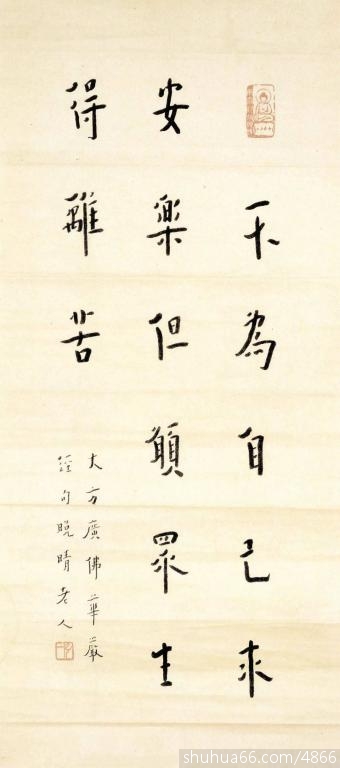 不為自己求
安樂但願眾生
得離苦
大方廣佛華嚴
經句晚晴老人
shuhua66.com/4866